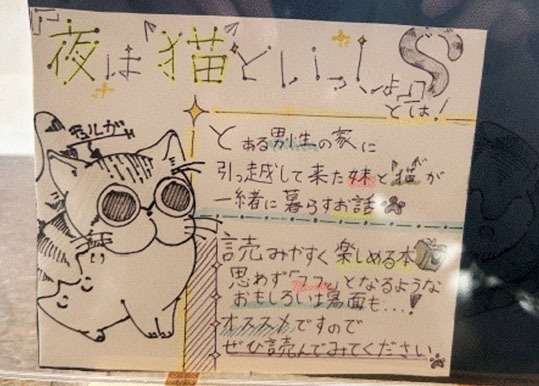 夜は"猫"といっしょ
とは!
キュルガ
とある男性の家に
引っ越して来た妹と"猫"が
一緒に暮らすお話
読みやすく楽しめる本
思わず「フフッ」となるような
おもしろい場面も...!
オススメですので
ぜひ読んでみてください